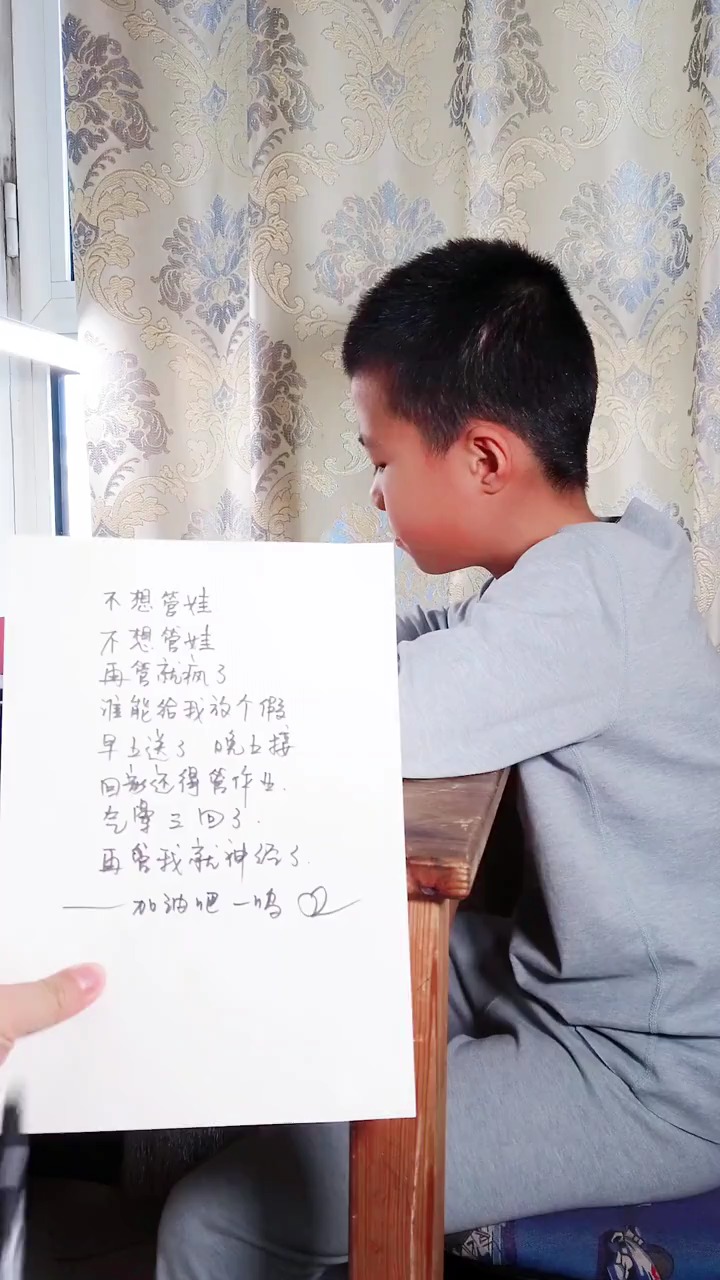 不想管娃
不想管娃
再管就疯了
谁能给我放个假
早上送了 晚上接
回家还得管作业.
气晕三回了.
再管我就神经了.
——加油吧 一鸣